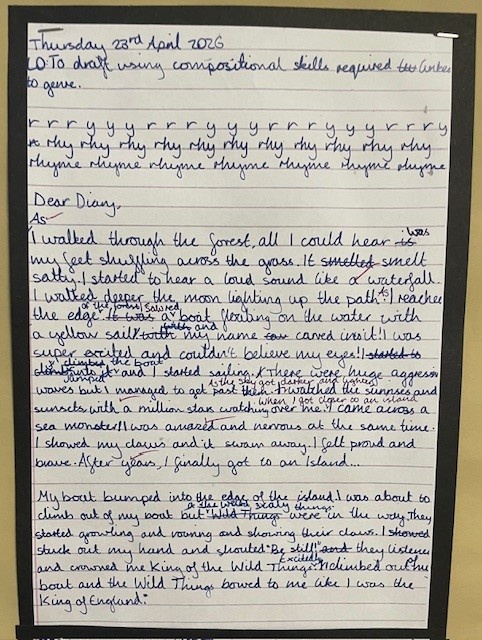 Thursday 23rd April 2026
LO: To draft using compositional skills required linked
to genre.
r r r y y y r r r y y y r r r y y y r r r y
rhy rhy rhy rhy rhy rhy rhy rhy rhy rhy
rhyme rhyme rhyme rhyme rhyme rhyme rhyme
Dear Diary,
As
I walked through the forest, all I could hear is was
my feet shuffling across the grass. It smelled smelt
salty. I started to hear a loud sound like a waterfall.
I walked deeper the moon lighting up the path. I reached
of the forest. I saw a
the edge. It was a boat floating on the water with
and
a yellow sail with my name carved in it! I was
super excited and couldn't believe my eyes! I started to
I climbed the boat
into it and I started sailing. There were huge aggressive
Jumped
as the sky got darker and lighter
waves but I managed to get past them. I watched the sunrises and
when I got closer to an island
sunsets with a million stars watching over me. I came across a
sea monster! I was amazed and nervous at the same time.
I showed my claws and it swam away. I felt proud and
brave. After years, I finally got to an Island...
My boat bumped into the edge of the island. I was about to
scaly things
climb out of my boat but "Wild Things" were in the way. They
started growling and roaring and showing their claws. I showed
stuck out my hand and shouted "Be still!" and they listened
Excitedly
and crowned me King of the Wild Things. I climbed out my
boat and the Wild Things bowed to me like I was the
King of England.